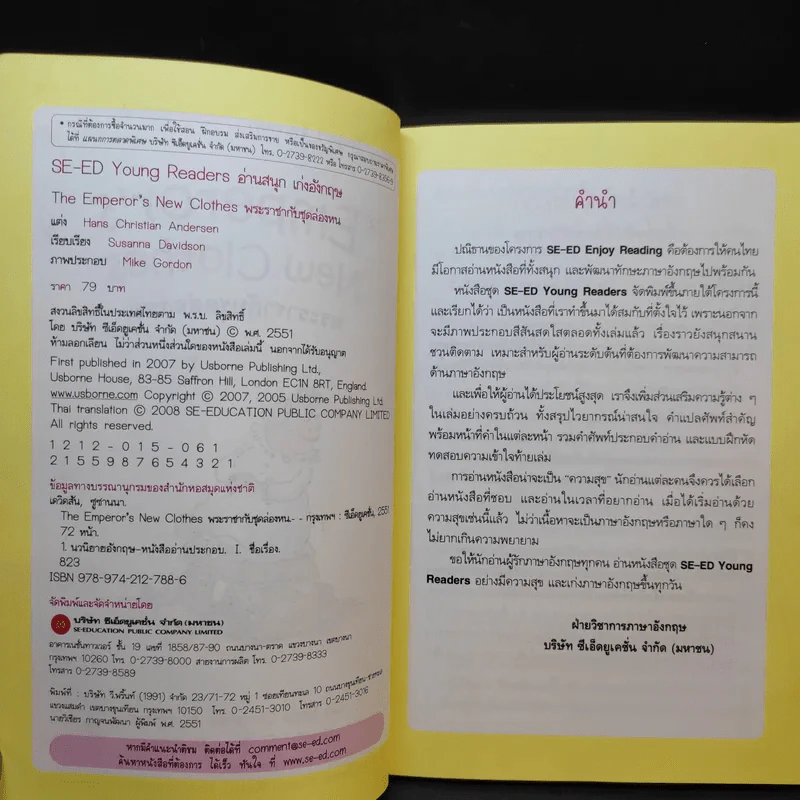 • กรณีที่ต้องการซื้อจำนวนมาก เพื่อใช้สอน ฝึกอบรม ส่งเสริมการขาย หรือเป็นของขวัญพิเศษ กรุณาสอบถามราคาพิเศษ
ได้ที่ แผนกการตลาดพิเศษ บริษัท ซีเอ็ดยูเคชั่น จำกัด (มหาชน) โทร. 0-2739-8222 หรือ โทรสาร 0-2739-8356-9
SE-ED Young Readers อ่านสนุก เก่งอังกฤษ
The Emperor's New Clothes พระราชากับชุดล่องหน
แต่ง Hans Christian Andersen
เรียบเรียง Susanna Davidson
ภาพประกอบ Mike Gordon
ราคา 79 บาท
สงวนลิขสิทธิ์ในประเทศไทยตาม พ.ร.บ. ลิขสิทธิ์
โดย บริษัท ซีเอ็ดยูเคชั่น จำกัด (มหาชน) © พ.ศ. 2551
ห้ามลอกเลียน ไม่ว่าส่วนหนึ่งส่วนใดของหนังสือเล่มนี้ นอกจากได้รับอนุญาต
First published in 2007 by Usborne Publishing Ltd.,
Usborne House, 83-85 Saffron Hill, London EC1N 8RT, England.
www.usborne.com Copyright © 2007, 2005 Usborne Publishing Ltd.
Thai translation © 2008 SE-EDUCATION PUBLIC COMPANY LIMITED
All rights reserved.
1 2 1 2 - 0 1 5 - 0 6 1
2 1 5 5 9 8 7 6 5 4 3 2 1
ข้อมูลทางบรรณานุกรมของสำนักหอสมุดแห่งชาติ
เดวิดสัน, ซูซานนา.
The Emperor's New Clothes พระราชากับชุดล่องหน- - กรุงเทพฯ : ซีเอ็ดยูเคชั่น, 2551
72 หน้า.
1. นวนิยายอังกฤษ-หนังสืออ่านประกอบ. I. ชื่อเรื่อง.
823
ISBN 978-974-212-788-6
จัดพิมพ์และจัดจำหน่ายโดย
บริษัท ซีเอ็ดยูเคชั่น จำกัด (มหาชน)
SE-EDUCATION PUBLIC COMPANY LIMITED
อาคารเนชั่นทาวเวอร์ ชั้น 19 เลขที่ 1858/87-90 ถนนบางนา-ตราด แขวงบางนา เขตบางนา
กรุงเทพฯ 10260 โทร. 0-2739-8000 สายงานการผลิต โทร. 0-2739-8333
โทรสาร 0-2739-8589
พิมพ์ที่ : บริษัท วี.พริ้นท์ (1991) จำกัด 23/71-72 หมู่ 1 ซอยเทียนทะเล 10 ถนนบางขุนเทียน-ชายทะเล
แขวงแสมดำ เขตบางขุนเทียน กรุงเทพฯ 10150 โทร. 0-2451-3010 โทรสาร 0-2451-3016
นายวิเชียร กาญจนพัฒนา ผู้พิมพ์ พ.ศ. 2551
หากมีคำแนะนำติชม ติดต่อได้ที่ comment@se-ed.com
ค้นหาหนังสือที่ต้องการ ได้เร็ว ทันใจ ที่ www.se-ed.com
คำนำ
ปณิธานของโครงการ SE-ED Enjoy Reading คือต้องการให้คนไทย
มีโอกาสอ่านหนังสือที่ทั้งสนุก และพัฒนาทักษะภาษาอังกฤษไปพร้อมกัน
หนังสือชุด SE-ED Young Readers จัดพิมพ์ขึ้นภายใต้โครงการนี้
และเรียกได้ว่า เป็นหนังสือที่เราทำขึ้นมาได้สมกับที่ตั้งใจไว้ เพราะนอกจาก
จะมีภาพประกอบสีสันสดใสตลอดทั้งเล่มแล้ว เรื่องราวยังสนุกสนาน
ชวนติดตาม เหมาะสำหรับผู้อ่านระดับต้นที่ต้องการพัฒนาความสามารถ
ด้านภาษาอังกฤษ
และเพื่อให้ผู้อ่านได้ประโยชน์สูงสุด เราจึงเพิ่มส่วนเสริมความรู้ต่าง ๆ
ในเล่มอย่างครบถ้วน ทั้งสรุปไวยากรณ์น่าสนใจ คำแปลศัพท์สำคัญ
พร้อมหน้าที่คำในแต่ละหน้า รวมคำศัพท์ประกอบคำอ่าน และแบบฝึกหัด
ทดสอบความเข้าใจท้ายเล่ม
การอ่านหนังสือน่าจะเป็น “ความสุข” นักอ่านแต่ละคนจึงควรได้เลือก
อ่านหนังสือที่ชอบ และอ่านในเวลาที่อยากอ่าน เมื่อได้เริ่มอ่านด้วย
ความสุขเช่นนี้แล้ว ไม่ว่าเนื้อหาจะเป็นภาษาอังกฤษหรือภาษาใด ๆ ก็คง
ไม่ยากเกินความพยายาม
ขอให้นักอ่านผู้รักภาษาอังกฤษทุกคน อ่านหนังสือชุด SE-ED Young
Readers อย่างมีความสุข และเก่งภาษาอังกฤษขึ้นทุกวัน
ฝ่ายวิชาการภาษาอังกฤษ
บริษัท ซีเอ็ดยูเคชั่น จำกัด (มหาชน)